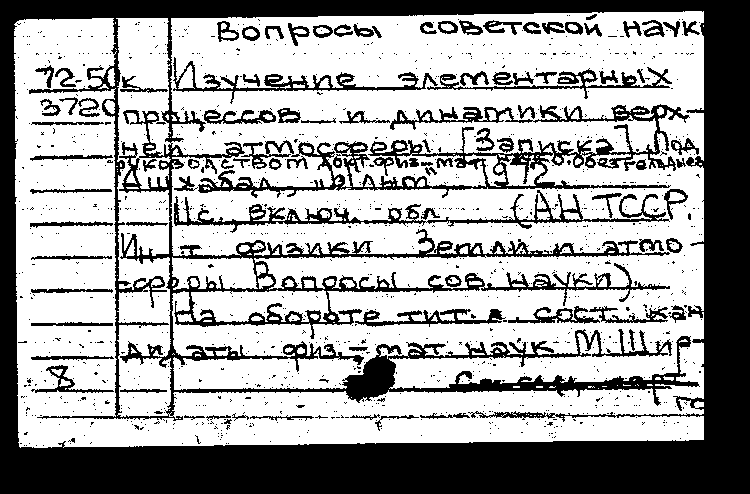 Вопросы советской науки
72-50к Изучение элементарных
3720 процессов и динамики верх-
ней атмосферы. [Записка]. Под
руководством докт. физ.-мат. наук О. Овезгельдыев
Ашхабад, "Ылым", 1972.
11с., включ. обл. (АН ТССР.
Ин-т физики Земли и атмо-
сферы. Вопросы сов. науки).
На обороте тит. л. сост.: кан
дидаты физ.-мат. наук М. Шир-
8
го